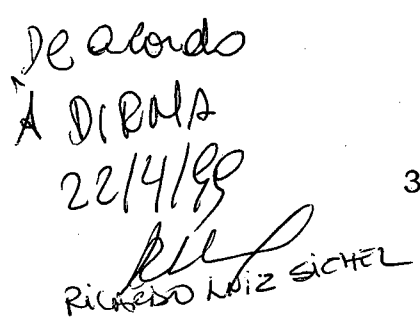 De acordo
À DIRMA
22/4/99
3
RICARDO LUIZ SICHEL